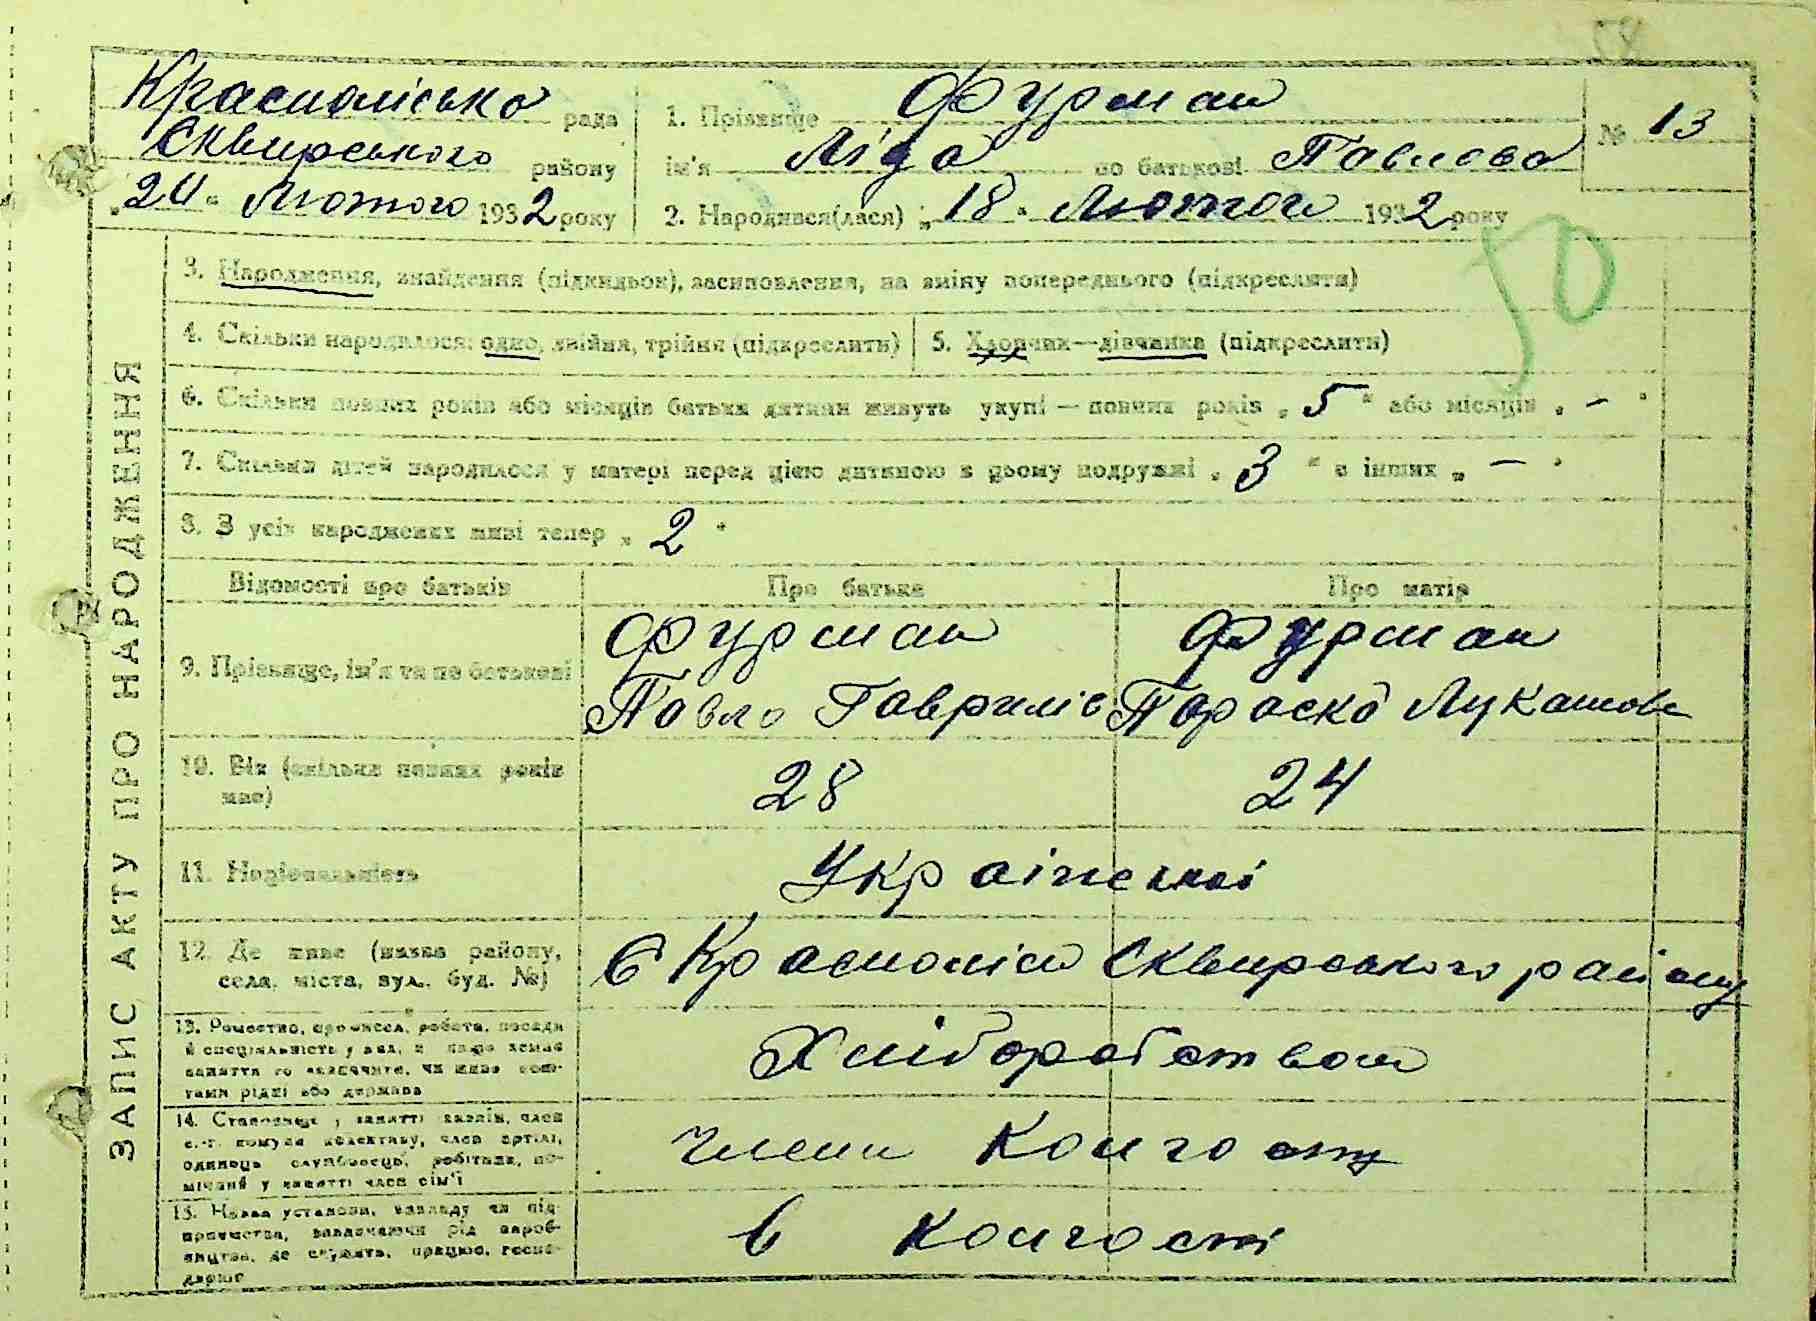 58
Краснолісько рада
Сквирського району
„24" Лютого 1932 року
1. Прізвище Фурман
ім'я Ліда по батькові Павлова
2. Народився(лася) „18" Лютого 1932 року
№ 13
50
ЗАПИС АКТУ ПРО НАРОДЖЕННЯ
3. Народження, знайдення (підкидьок), засиновлення, на зміну попереднього (підкреслити)
4. Скільки народилося: одно, двійня, трійня (підкреслити)
5. Хлопчик—дівчинка (підкреслити)
6. Скільки повних років або місяців батьки дитини живуть укупі — повних років „5" або місяців „–"
7. Скільки дітей народилося у матері перед цією дитиною в цьому подружжі „3" в інших „–"
8. З усіх народжених живі тепер „2"
Відомості про батьків
Про батька
Про матір
9. Прізвище, ім'я та по батькові
Фурман
Павло Гаврилів
Фурман
Параска Лукашова
10. Вік (скільки повних років має)
28
24
11. Національність
Українські
12. Де живе (назва району,
села, міста, вул., буд. №)
с Красноліси Сквирського району
13. Ремество, професія, робота, посада
й спеціяльність у ній, а якщо немає
заняття то зазначити, чи живе кош-
тами рідні або держави
Хліборобством
14. Становище у занятті хазяїн, член
с.-г. комуни колективу, член артілі,
одинець службовець, робітник, по-
мічний у занятті член сім'ї
члени колгоспу
15. Назва установи, закладу чи під-
приємства, зазначаючи рід вироб-
ництва, де служить, працює, госпо-
дарює
в колгоспі